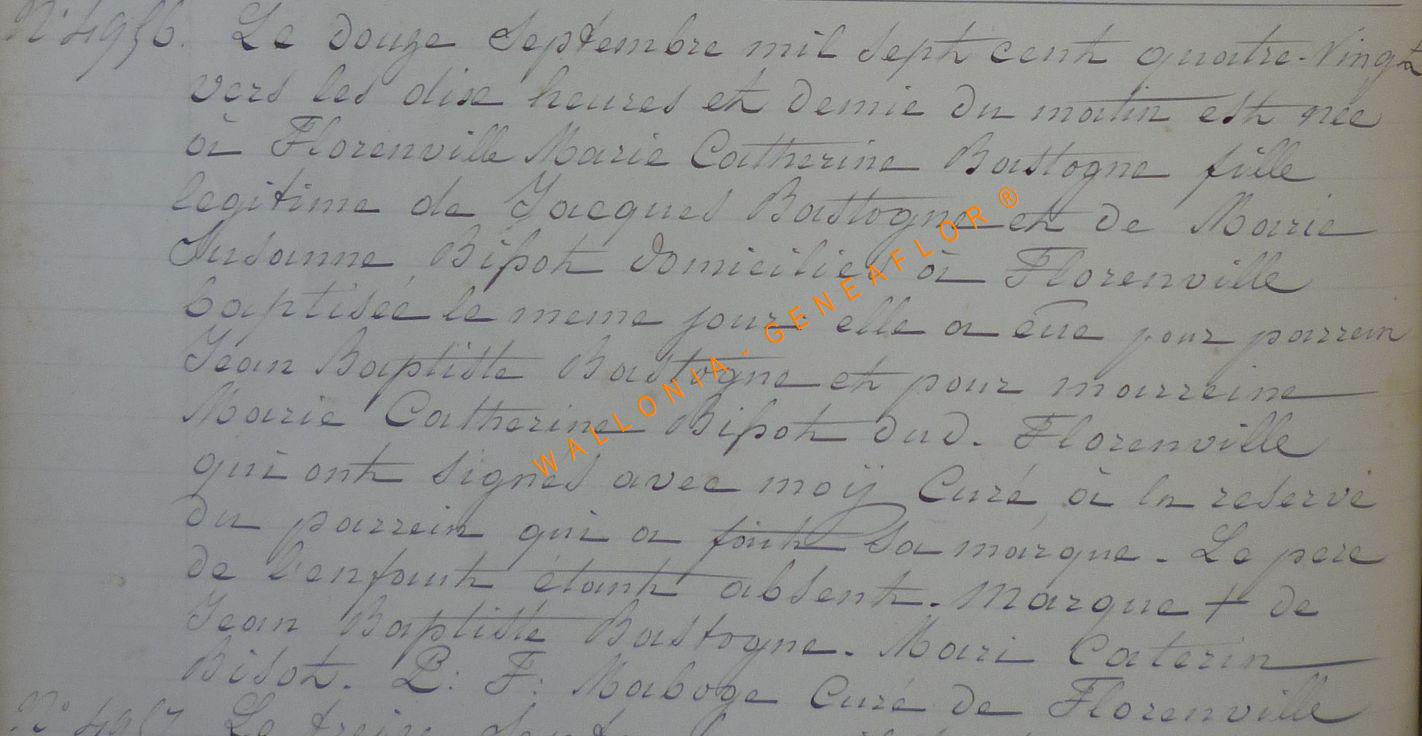 N° 4956. Le douze Septembre mil sept cent quatre-Vingt
vers les dix heures et demie du matin est née
à Florenville Marie Catherine Bastogne fille
legitime de Jacques Bastogne et de Marie
Susanne Bisot domiciliés à Florenville
baptisée le meme jour elle a eue pour parrein
Jean Baptiste Bastogne et pour marreine
Marie Catherine Bisot dud. Florenville
qui ont signés avec moÿ Curé à la reserve
du parrein qui a fait sa marque. Le pere
de l'enfant étant absent. Marque + de
Jean Baptiste Bastogne. Mari Caterin
Bisot. P: F: Maboge Curé de Florenville
N° 4957 Le treize
WALLONIA - GENEAFLOR ®